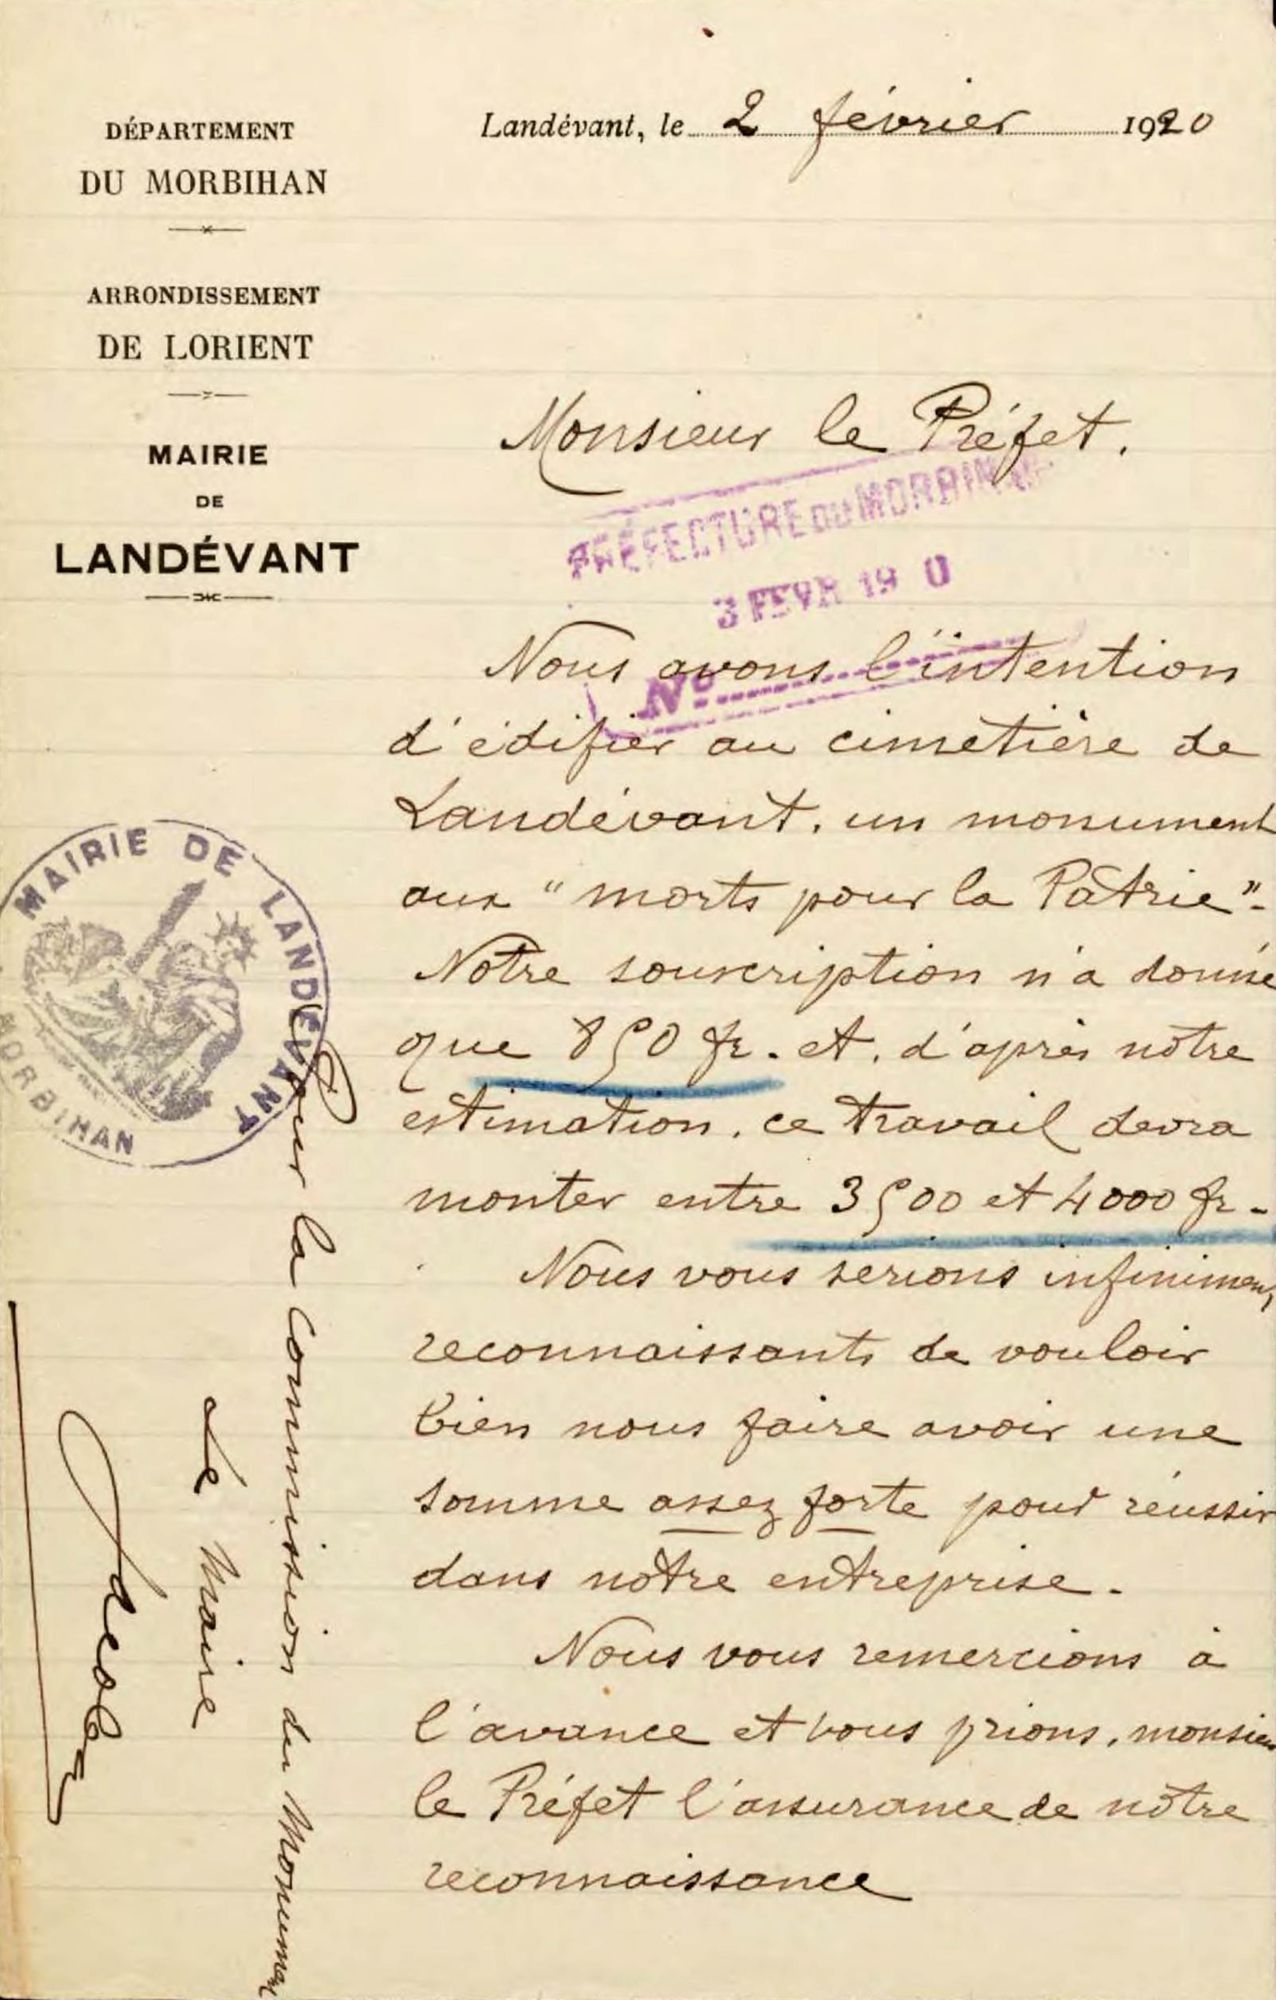 DÉPARTEMENT
DU MORBIHAN
ARRONDISSEMENT
DE LORIENT
MAIRIE
DE
LANDÉVANT
Landévant, le 2 février 1920
Monsieur le Préfet.
PRÉFECTURE DU MORBIHAN
3 FEVR 19 0
N°
Nous avons l'intention
d'édifier au cimetière de
Landévant, un monument
aux "morts pour la Patrie".
Notre souscription n'a donné
que 850 fr. et, d'après nôtre
estimation, ce travail devra
monter entre 3500 et 4000 fr.
Nous vous serions infiniment
reconnaissants de vouloir
bien nous faire avoir une
somme assez forte pour réussir
dans nôtre entreprise.
Nous vous remercions à
l'avance et vous prions, monsieur
le Préfet l'assurance de nôtre
reconnaissance
MAIRIE DE LANDÉVANT
MORBIHAN
Pour la Commission du Monument
Le Maire